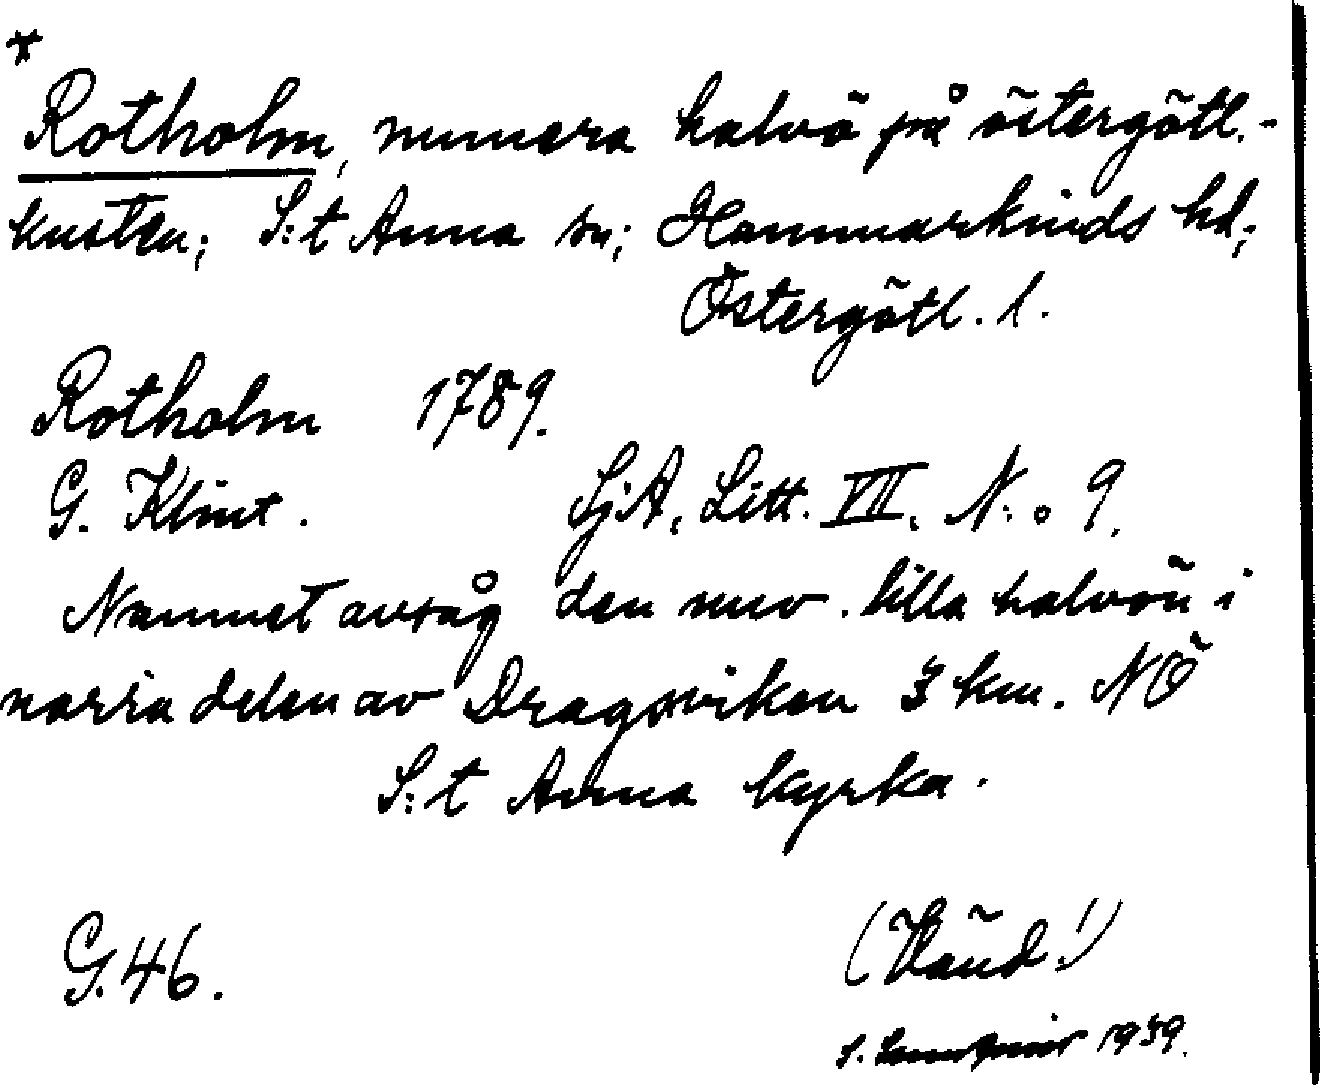 *
Rotholm, numera halvö på östergötl.-
kusten; S:t Anna sn; Hammarkinds hd;
Östergötl. l.
Rotholm 1789.
G. Klint. SjA, Litt. VII, N:o 9.
Namnet avsåg den nuv. lilla halvön i
norra delen av Dragsviken 3 km. NÖ
S:t Anna kyrka.
G.46. (Vänd!)
S. 1939.